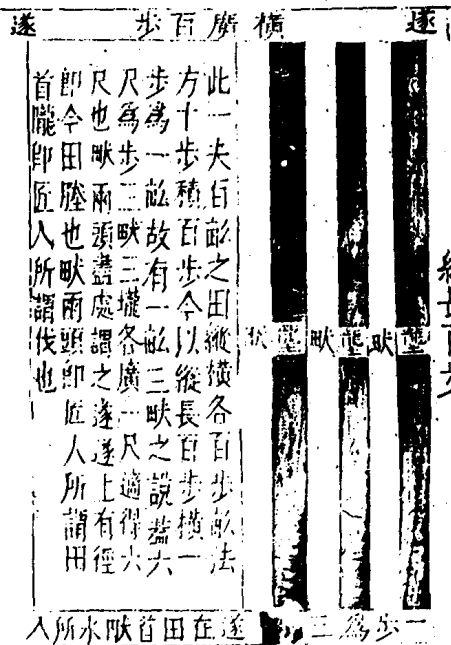 遂　橫廣百步　遂
壟畎壟畎壟畎
縱長百步
此一夫百畝之田縱橫各百步畝法
方十步積百步今以縱長百步橫一
步為一畝故有一畝三畎之說葢六
尺為步三畎三壠各廣一尺適得六
尺也畎兩頭盡處謂之遂遂上有徑
即今田塍也畎兩頭即匠人所謂田
首隴即匠人所謂伐也
一步爲三
遂在田首畎水所入